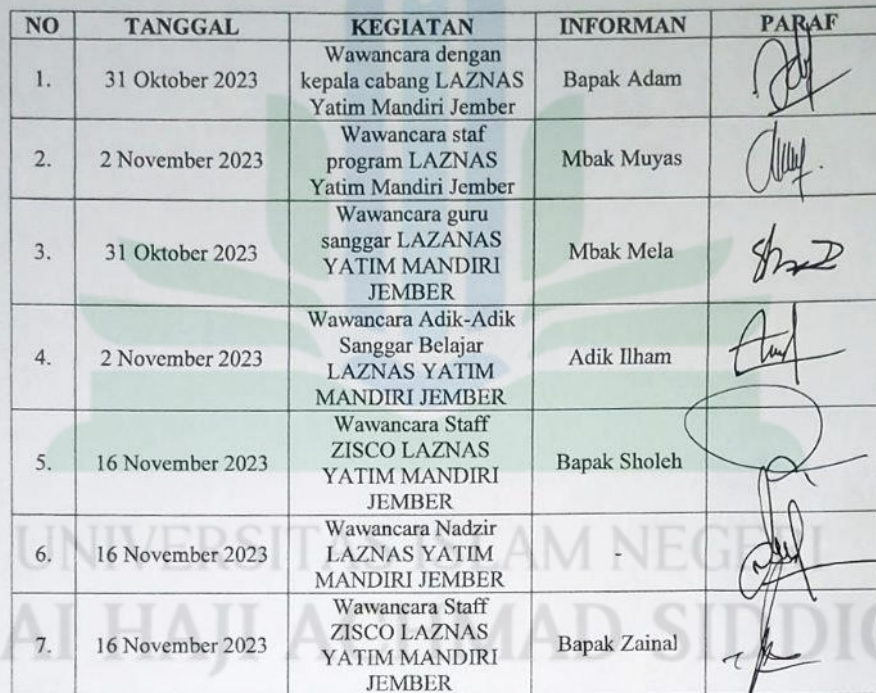 NO TANGGAL KEGIATAN INFORMAN PARAF
1. 31 Oktober 2023 Wawancara dengan
kepala cabang LAZNAS
Yatim Mandiri Jember Bapak Adam
2. 2 November 2023 Wawancara staf
program LAZNAS
Yatim Mandiri Jember Mbak Muyas
3. 31 Oktober 2023 Wawancara guru
sanggar LAZANAS
YATIM MANDIRI
JEMBER Mbak Mela
4. 2 November 2023 Wawancara Adik-Adik
Sanggar Belajar
LAZNAS YATIM
MANDIRI JEMBER Adik Ilham
5. 16 November 2023 Wawancara Staff
ZISCO LAZNAS
YATIM MANDIRI
JEMBER Bapak Sholeh
6. 16 November 2023 Wawancara Nadzir
LAZNAS YATIM
MANDIRI JEMBER -
7. 16 November 2023 Wawancara Staff
ZISCO LAZNAS
YATIM MANDIRI
JEMBER Bapak Zainal
UNIVERSITAS ISLAM NEGERI
AI HAJI ACHMAD SIDDIQ